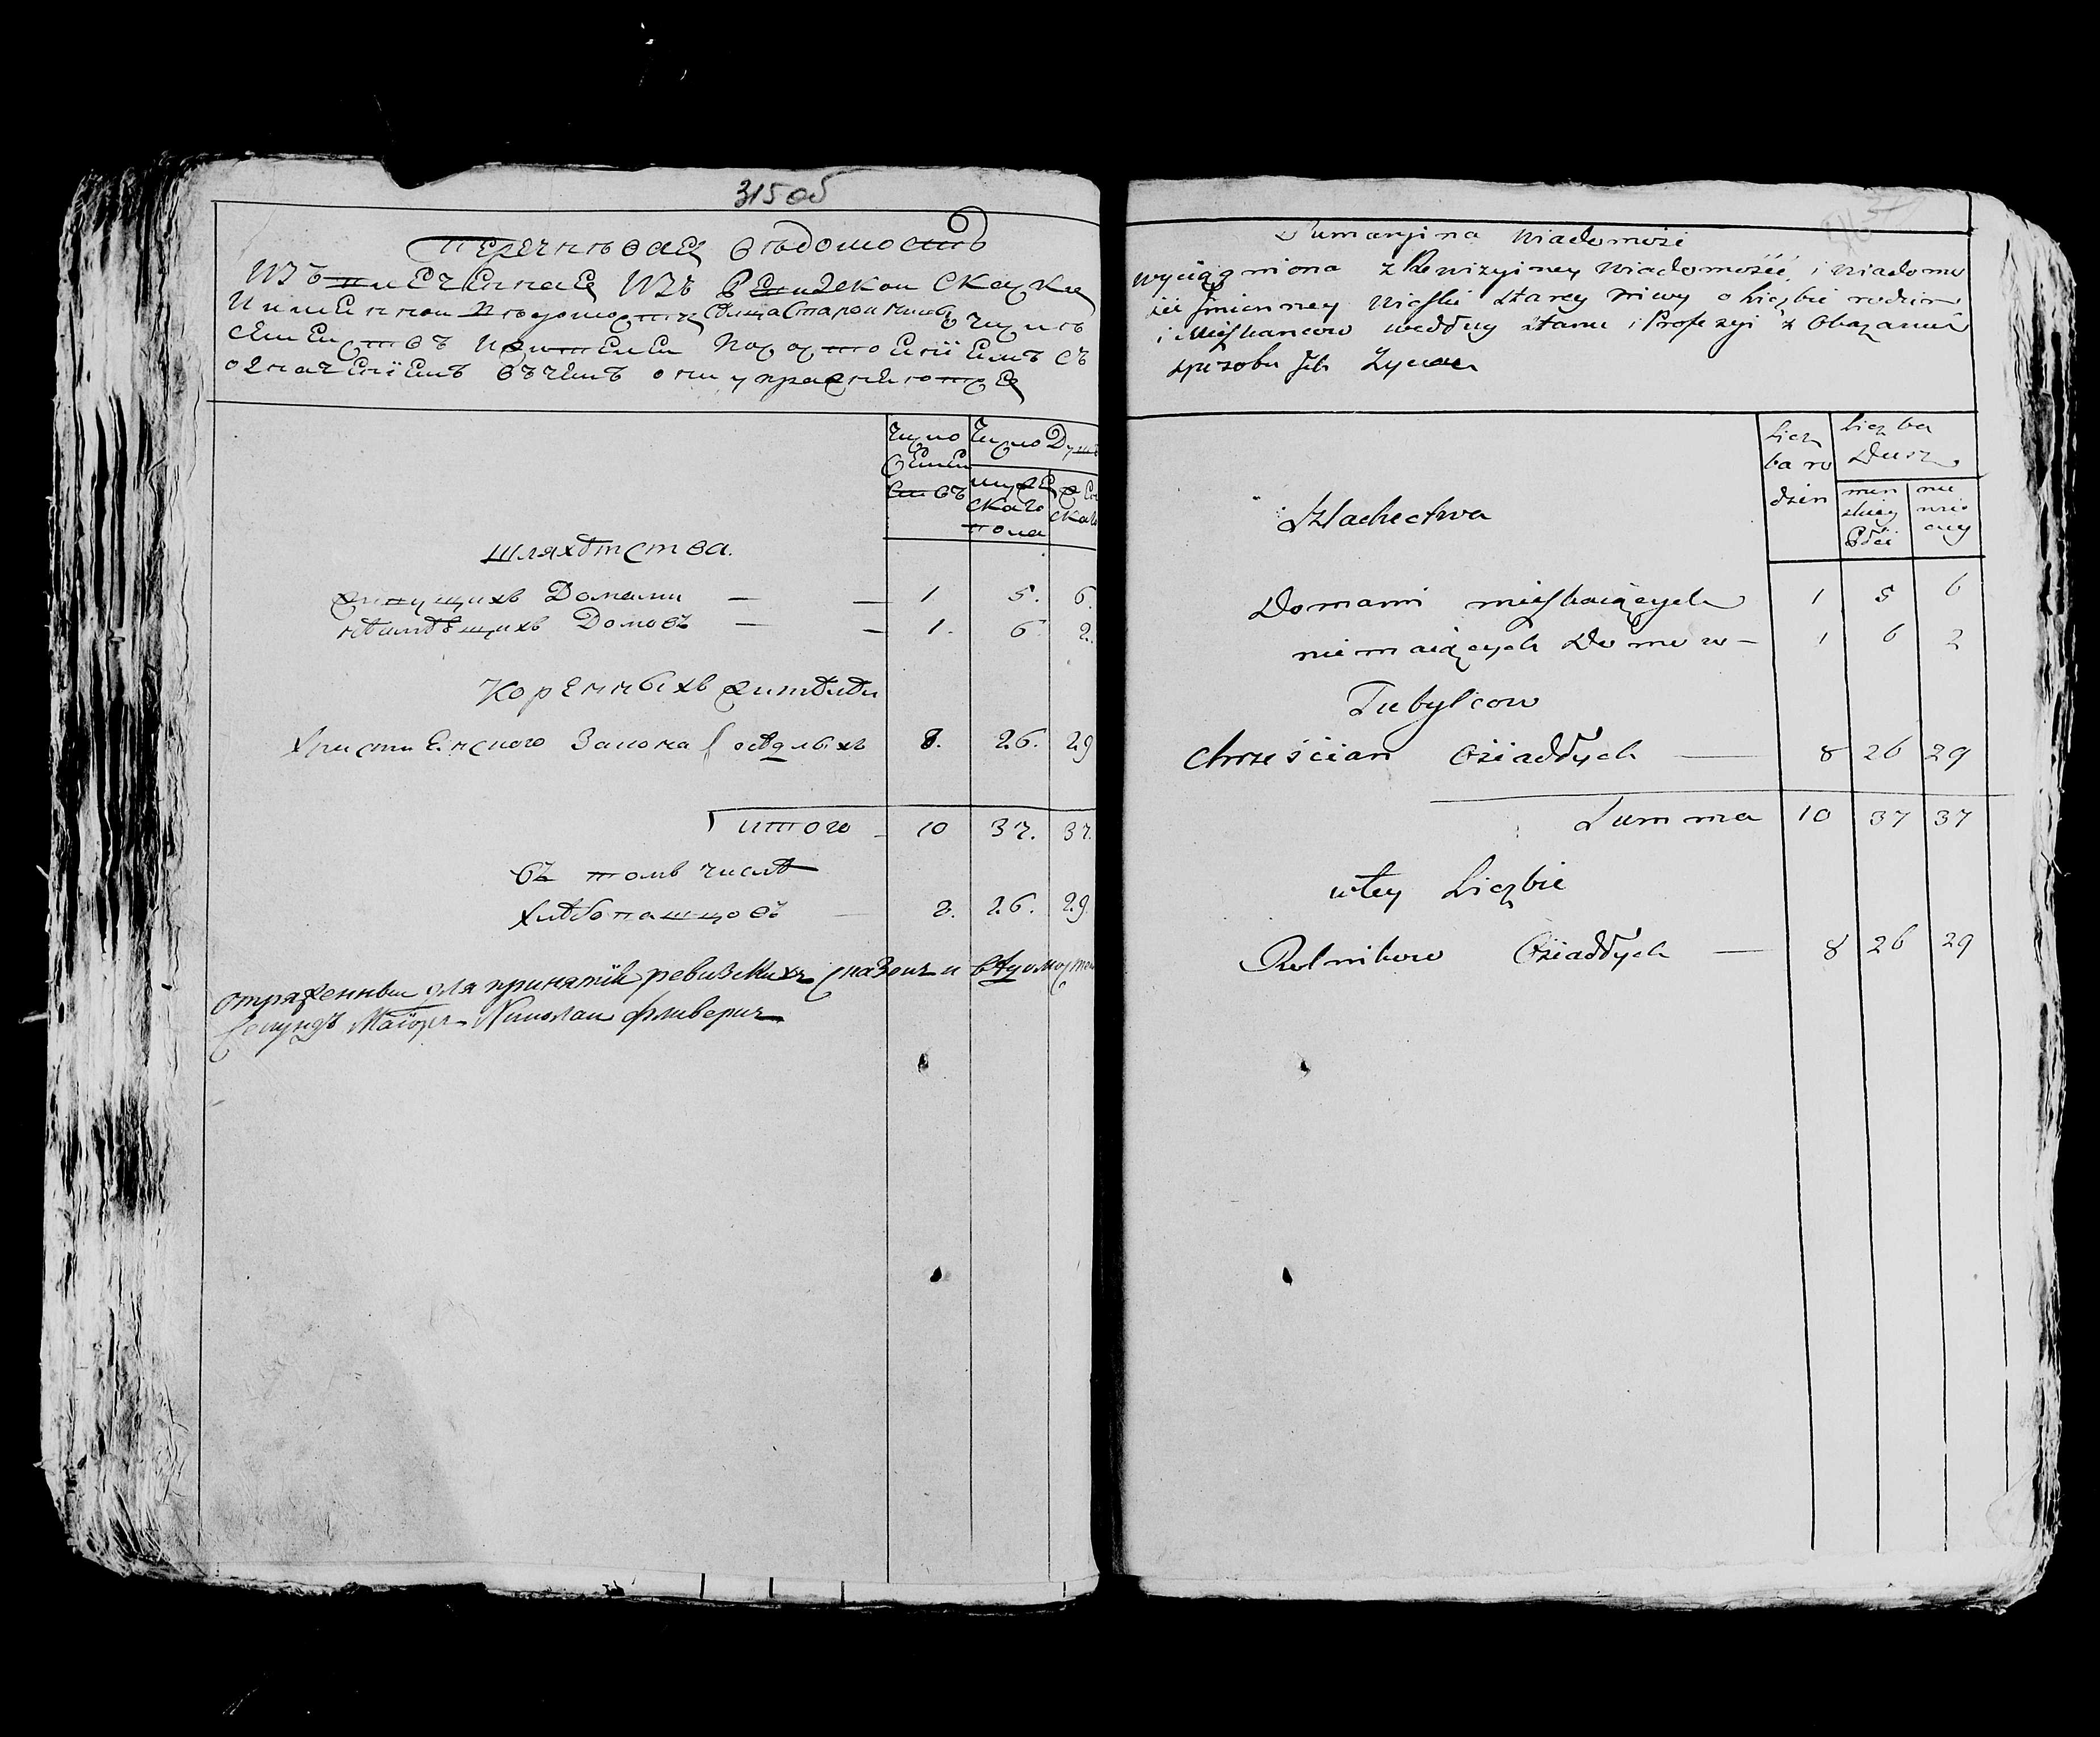 315 об
перечневая ведомость
Изъ пилеченная Изъ Ревизской Скаски
Имменной Ведомости села Старой нивы о числе
семействъ и жителей по состоениiемъ съ
означенiемъ въ чемъ они упражняютса
число семей ствъ
число Душъ
мужескаго пола
женскаго
шляхѣтства.
живущихъ Домами — — 1 5. 6.
неимѣющихъ Домовъ — — 1. 6 2.
Коренныхъ жителѣй
християнского закона оседлыхъ 8. 26. 29
итого 10 37. 37.
въ томъ числѣ
хлѣбопашцовъ — 8. 26. 29.
отряженный для принятiя ревизскихъ сказокъ и вѣдомостей
Секундъ Маiоръ Николай
Sumaryina Wiadomość
wyciągniona z Rewizyiney Wiadomości i wiadomo
ści Jmienney Wioski Starey Niwy o Liczbie rodzin
i Mieszkancow według stanu i Profesyi z Okazaniem
sposobu Jch Życia
Licz ba ro dzin
Liczba Dusz
męn skiey Płci
nie wie ciey
Szlachectwa
Domami mieszkaiących 1 5 6
niemaiących Domow — 1 6 2
Tubylcow
Chrześcian Osiadłych — 8 26 29
Summa 10 37 37
w tey Liczbie
Rolnikow Osiadłych — 8 26 29